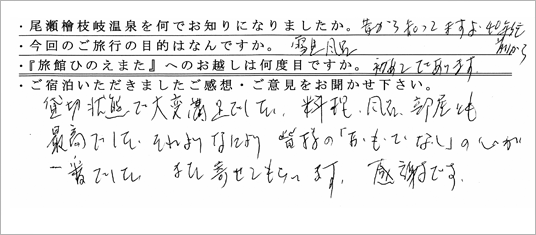 ・尾瀬檜枝岐温泉を何でお知りになりましたか。昔から知ってますよ 40年位前から
・今回のご旅行の目的はなんですか。雪見風呂
・『旅館ひのえまた』へのお越しは何度目ですか。初めてであります。
・ご宿泊いただきましたご感想・ご意見をお聞かせ下さい。
貸切状態で大変満足でした。料理、風呂、部屋とも
最高でした。それよりなにより皆様の「おもてなし」の心が
一番でした。また寄せてもらいます。感謝です。